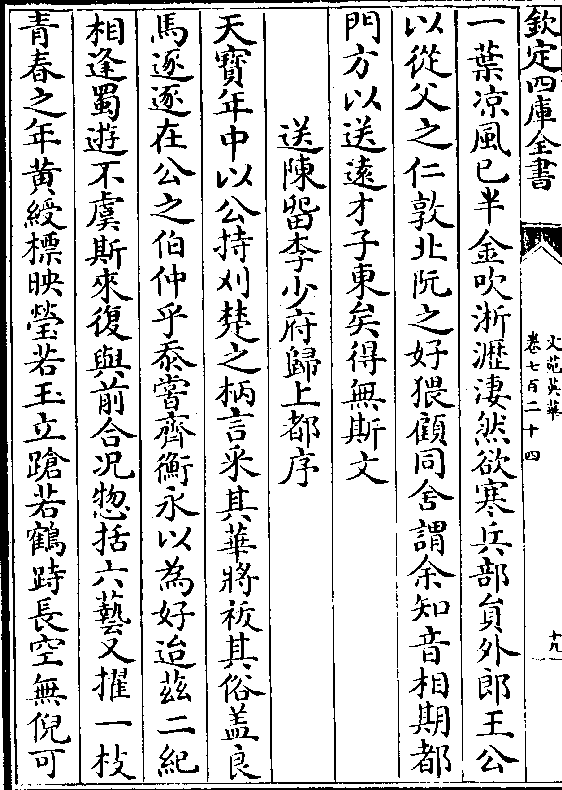 欽定四庫全書
文苑英華
卷七百二十四
十九
一葉凉風已半金吹淅瀝淒然欲寒兵部貟外郎王公
以從父之仁敦北阮之好猥顧同舍謂余知音相期都
門方以送遠才子東矣得無斯文
送陳留李少府歸上都序
天寶年中以公持刈楚之柄言采其華將祓其俗盖良
馬逐逐在公之伯仲乎忝嘗齊衡永以為好迨兹二紀
相逢蜀遊不虞斯來復與前合况惣括六藝又擢一枝
青春之年黄綬標映瑩若玉立蹌若鶴跱長空無倪可